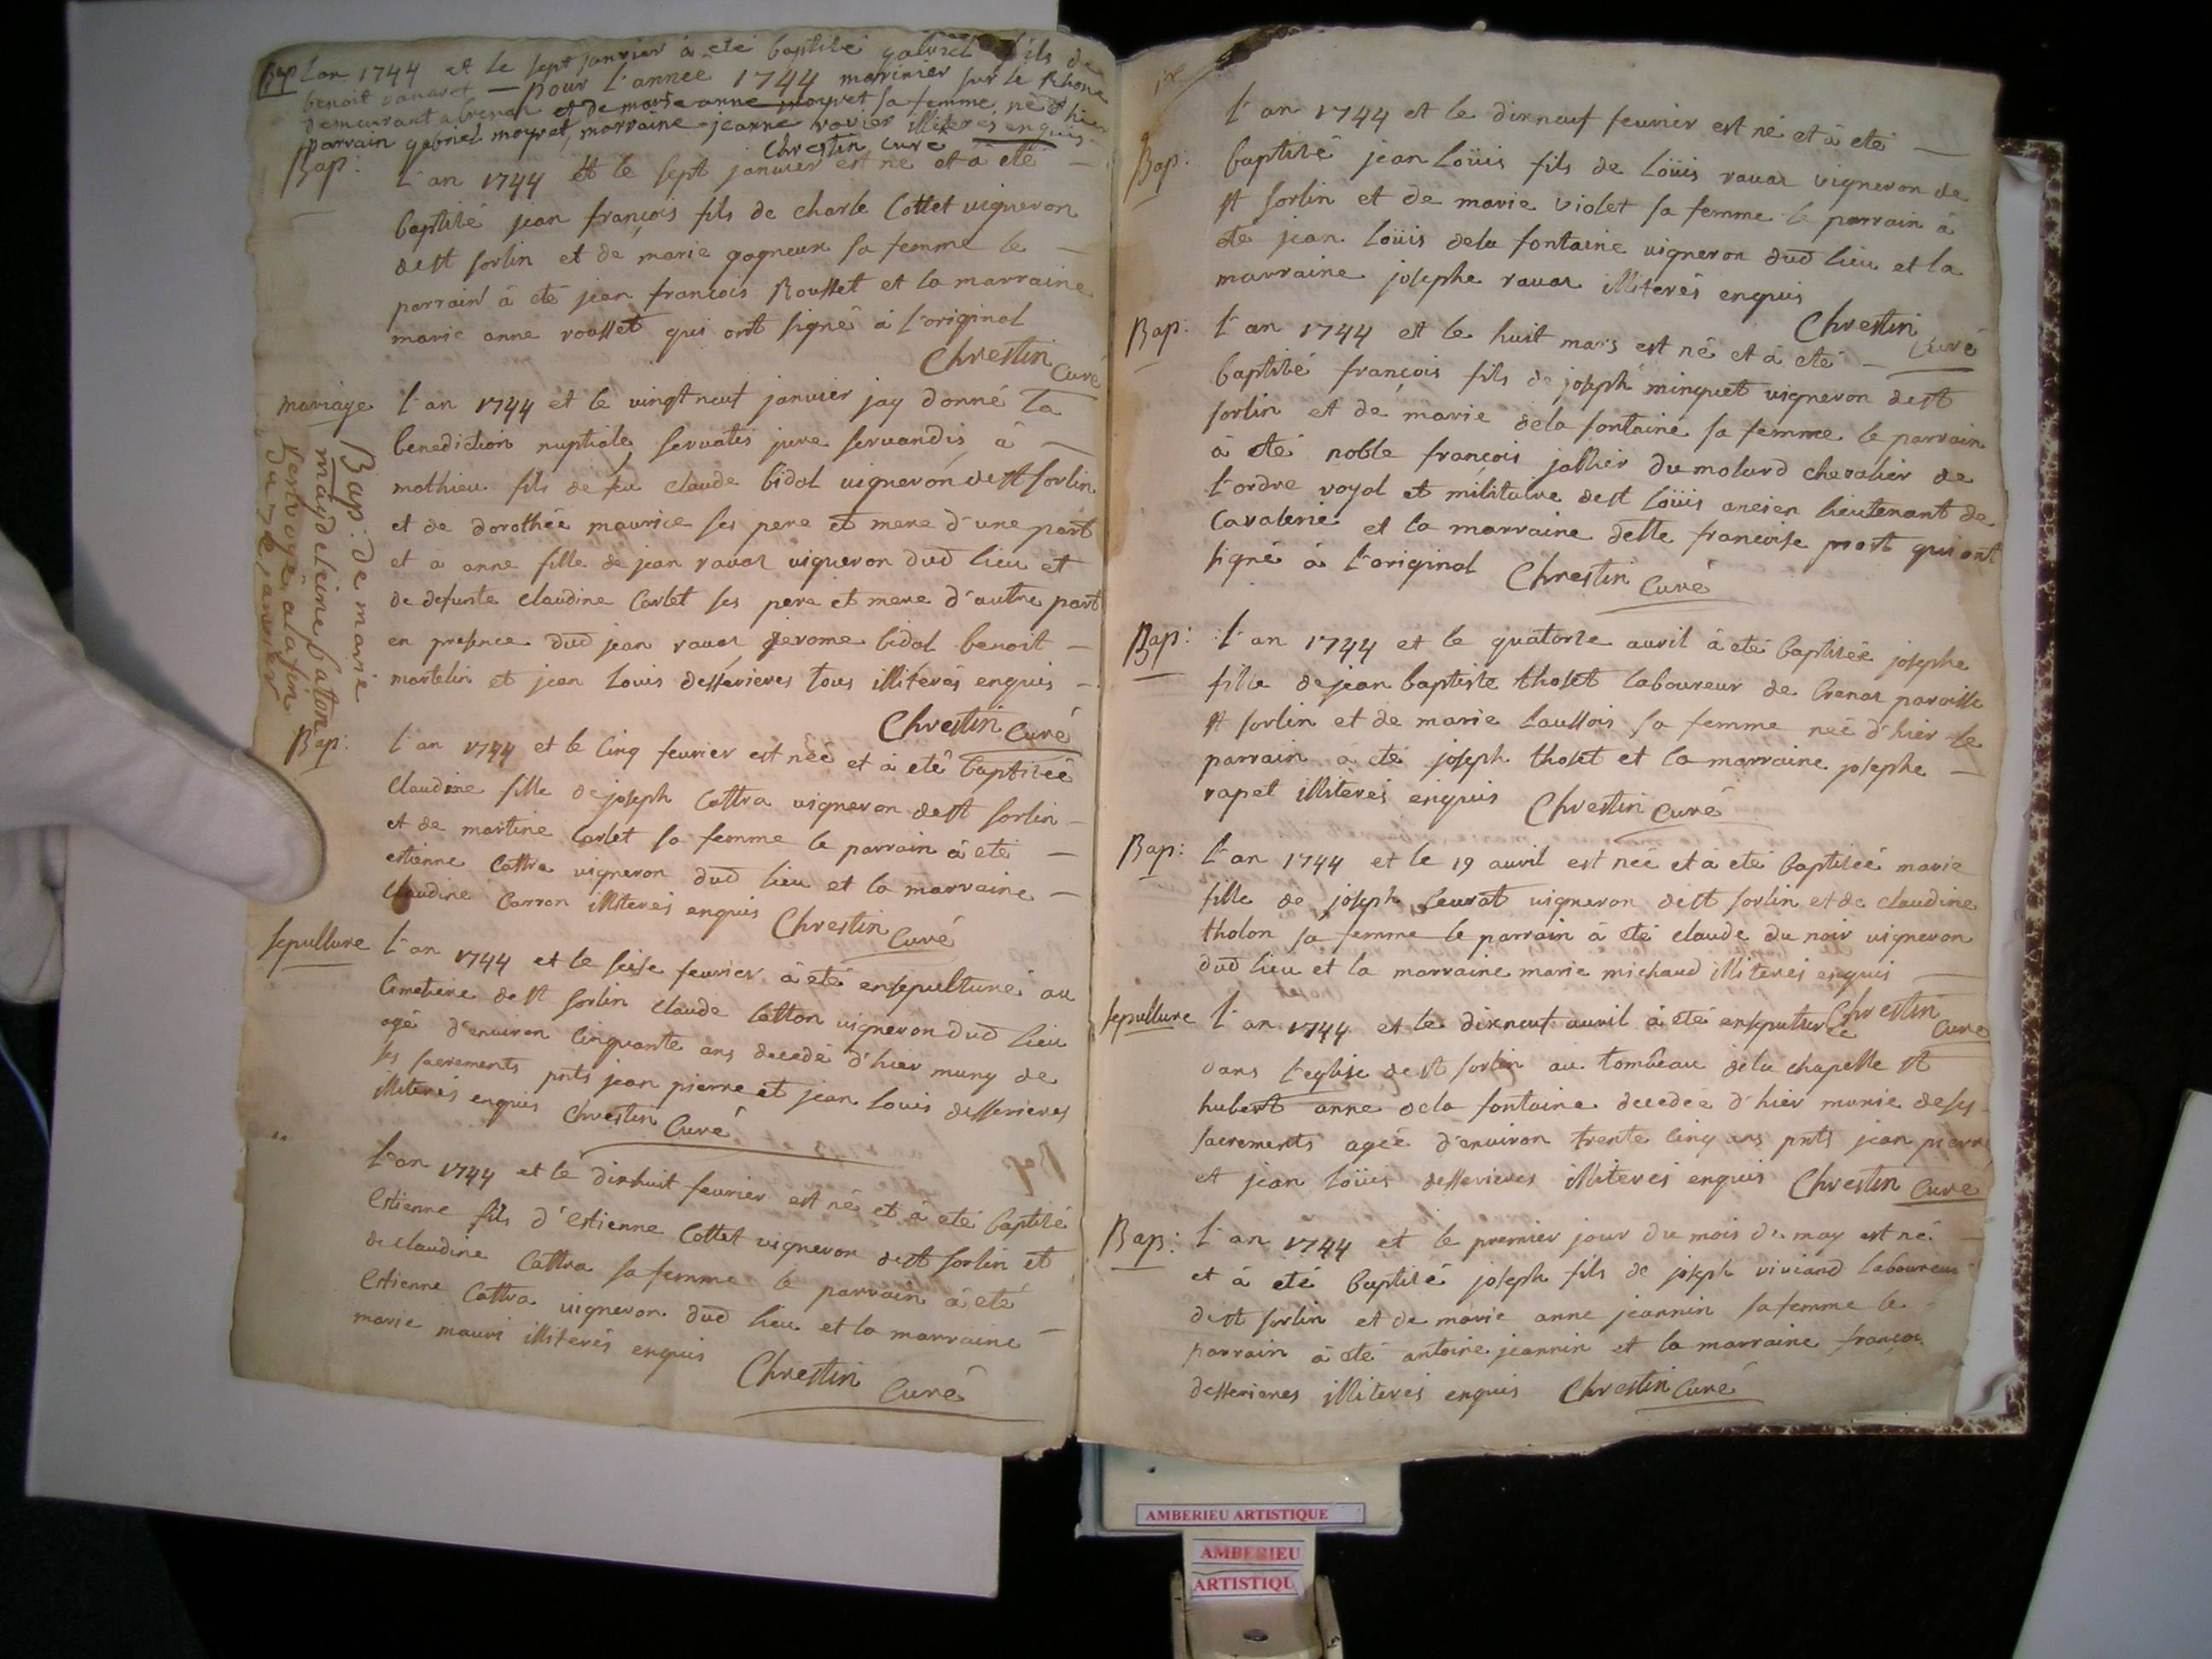 Bap L'an 1744 et le sept janvier à eté baptisé gabriel fils de
benoit ravaret — pour l'année 1744 marinier sur le Rhone
demeurant a brenaz et de marie anne moyret sa femme né d'hier
parrain gabriel moyret, marraine jeanne ravier illiterés enquis
Chrestin curé
Bap: L'an 1744 et le sept janvier est né et à eté —
baptisé jean françois fils de charle Cottet vigneron
de st sorlin et de marie gagneux sa femme le —
parrain à eté jean françois Rousset et la marraine
marie anne rousset qui ont signé à l'original
Chrestin Curé
mariage L'an 1744 et le vingt neuf janvier jay donné La
benediction nuptiale servatis jure servandis à —
mathieu fils de feu claude bidal vigneron de st sorlin
et de dorothée maurice ses pere et mere d'une part
et à anne fille de jean ravaz vigneron dud lieu et
de defunte claudine Carlet ses pere et mere d'autre part
en presence dud jean ravaz jerome bidal benoit —
martelin et jean Louis desserieres tous illiterés enquis —
Chrestin Curé
Bap: de marie
magdeleine baton
renvoyé a la fin
du 7e janvier
Bap: L'an 1744 et le Cinq fevrier est née et à eté baptisée
Claudine fille de joseph Cattra vigneron de st sorlin —
et de martine Carlet sa femme le parrain à eté —
estienne Cattra vigneron dud lieu et la marraine —
claudine Carron illiterés enquis Chrestin Curé
sepulture L'an 1744 et le seize fevrier à eté ensepulturé au
Cimetiere de st sorlin claude Catton vigneron dud lieu
agé d'environ Cinquante ans decedé d'hier muny de
ses sacrements pnts jean pierre et jean Louis desserieres
illiterés enquis Chrestin Curé
L'an 1744 et le dixhuit fevrier est né et à eté baptisé
Estienne fils d'Estienne Cottet vigneron de st sorlin et
de claudine Cattra sa femme le parrain à eté
Estienne Cattra vigneron dud lieu et la marraine —
marie mauri illiterés enquis
Chrestin Curé
L'an 1744 et le dixneuf fevrier est né et à eté —
Bap: baptisé jean Loüis fils de Loüis ravaz vigneron de
st sorlin et de marie violet sa femme le parrain à
eté jean Loüis dela fontaine vigneron dud lieu et la
marraine josephe ravaz illiterés enquis
Chrestin Curé
Bap: L'an 1744 et le huit mars est né et à eté —
baptisé françois fils de joseph minguet vigneron de st
sorlin et de marie dela fontaine sa femme le parrain
à eté noble françois jallier du molard chevalier de
l'ordre royal et militaire de st Loüis ancien lieutenant de
Cavalerie et la marraine delle francoise prost qui ont
signé à l'original Chrestin Curé
Bap: L'an 1744 et le quatorze avril à eté baptisée josephe
fille de jean baptiste thoset laboureur de brenaz paroisse
st sorlin et de marie laussois sa femme née d'hier le
parrain à eté joseph thoset et la marraine josephe —
rapet illiterés enquis Chrestin Curé
Bap: L'an 1744 et le 19 avril est née et à eté baptisée marie
fille de joseph Ceurat vigneron de st sorlin et de claudine
tholon sa femme le parrain à eté claude du noir vigneron
dud lieu et la marraine marie michaud illiterés enquis —
Chrestin Curé
sepulture L'an 1744 et le dixneuf avril à eté ensepulturée
dans l'eglise de st sorlin au tombeau dela chapelle st
hubert anne dela fontaine decedée d'hier munie de ses
sacrements agée d'environ trente cinq ans pnts jean pierre
et jean Loüis desserieres illiterés enquis Chrestin Curé
Bap: L'an 1744 et le premier jour du mois de may est né —
et à eté baptisé joseph fils de joseph viviand laboureur
de st sorlin et de marie anne jeannin sa femme le
parrain à eté antoine jeannin et la marraine françoi
desserieres illiterés enquis Chrestin Curé
AMBERIEU ARTISTIQUE
AMBERIEU
ARTISTIQU